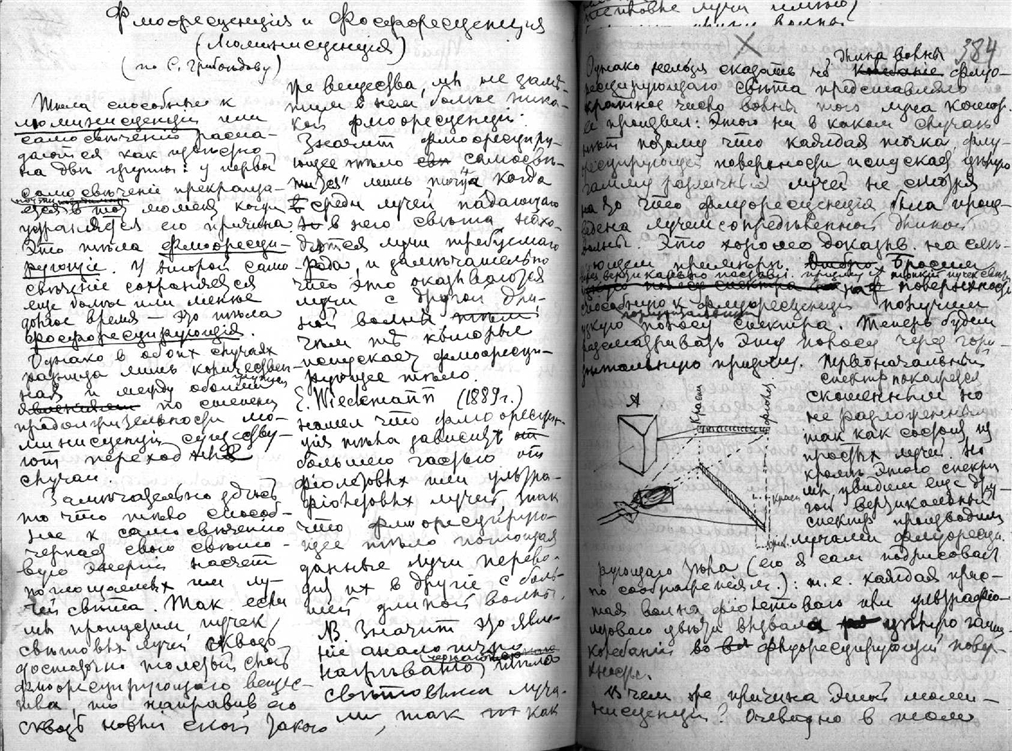 Флюоресценція и Фосфоресценция
(Люминисценція)
(по С. Грибоѣдову)
Тѣла способныя къ
люминисценціи или
самосвѣченію распа-
даются какъ извѣстно
на двѣ группы: у первой
самосвѣченіе прекраща-
ется въ тотъ моментъ когда
устраняется его причина
Это тѣла флюоресци-
рующіе. У второй само-
свѣченіе сохраняется
еще болѣе или менѣе
долгое время — это тѣла
фосфоресцирующія.
Однако в обоих случаях
разница лишь количествен-
ная и между обоими
по степени
продолжительности лю-
минисценціи существу-
ют переходные
случаи.
Замѣчательно здѣсь
то что тѣло способ-
ное к самосвѣченію
черпает свою свѣто-
вую энергію насчет
поглощаемых им лу-
чей свѣта. Так если
мы пропустим пучек
свѣтовых лучей сквозь
достаточно толстый слой
флюоресцирующаго вещес-
тва, то направив его
сквозь новый слой такого
же вещества, мы не замѣ-
тим в нем болѣе ника-
кой флюоресценціи.
Значит флюоресциру-
ющее тѣло самосвѣ-
тится" лишь тогда когда
среди лучей падающаго
на него свѣта нахо-
дятся лучи требуемаго
рода, и замѣчательно
что это оказываются
лучи с другой дли-
ной волны
чѣм тѣ которые
испускает флюоресци-
рующее тѣло.
E. Wiedemann (1889г.)
нашел что флюоресцен-
ція тѣла зависит от
большею частью от
фіолетовых или ультра-
фіолетовых лучей, так
что флюоресцирую-
щее тѣло поглощая
данные лучи перево-
дит их в другіе с боль-
шей длиной волны.
NB. Значит это явле-
ніе аналогично
нагрѣванію тѣла
свѣтовыми луча-
ми, так как
384
длина волны
Однако нельзя сказать что флюо-
ресцирующаго свѣта представляла
кратное число волны того луча котор.
ее произвел: Этого ни в каком случаѣ
нѣт потому что каждая точка флу-
ресцирующей поверхности испускает цѣлую
гамму различных лучей не смотря
на то что флюоресценція была произ-
ведена лучем опредѣленной длиной
волны. Это хорошо доказыв. на слѣ-
ющем примѣрѣ. Бросим
поверхность
способную к флюоресценціи получим
узкую полосу спектра. Теперь будем
разсматривать эту полосу через гори-
зонтальную призму. Первоначальный
спектр покажется
скошенным но
не разложенным
так как состоит из
простых лучей. Но
кромѣ этого спектра
мы увидим еще дру-
гой вертикальный
спектр производим.
лучами флюоресци-
A
Красн.
фіолет.
красн.
рующаго тѣла (его я сам подрисовал
по соображеніям): т.е. каждая прос-
тая волна фіолетоваго или ультрафіо-
летоваго цвѣта вызвала цѣлую гамму
колебаній во флюоресцирующей повер-
хности.
В чем же причина этой люми-
нисценціи? Очевидно в том